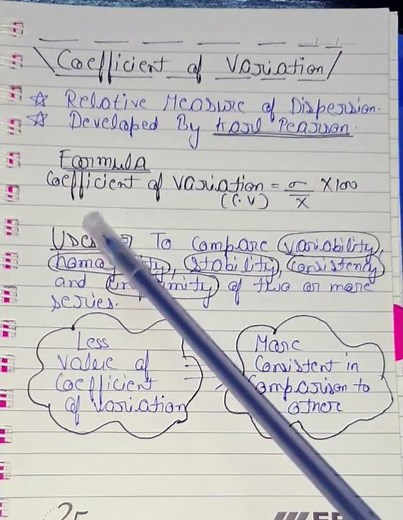 Coefficient of Variation
☆ Relative Measure of Dispersion.
☆ Developed By Karl Pearson.
Formula
Coefficient of Variation = σ/x̄ × 100
(C.V)
Uses → To Compare Variability,
Stability, Consistency
and of two or more
series.
Less
Value of
Coefficient
of Variation
=
More
Consistent in
Comparison to
others
25